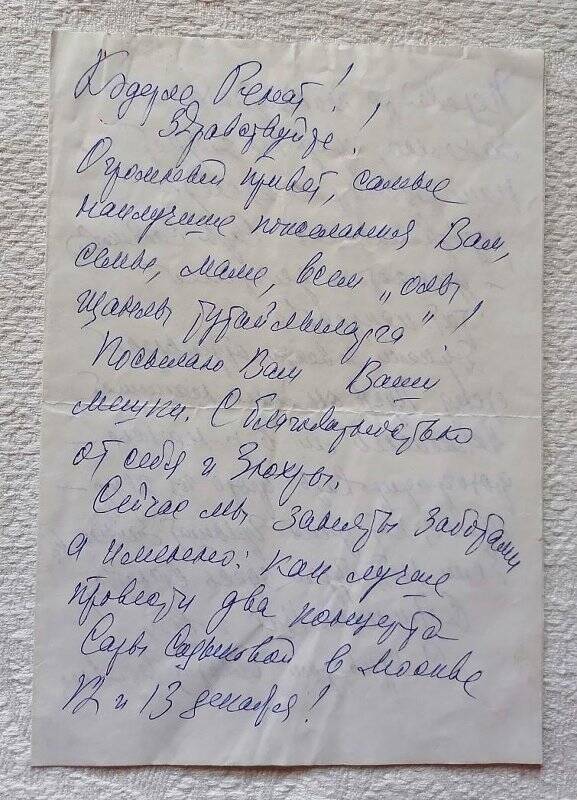 Кадерле Ренат!
Здравствуйте!
Огромный привет, самые
наилучшие пожелания Вам,
семье, маме, всем „олы
туганларга"!
Посылаю Вам Ваши
мешки. С благодарностью
от себя и Зухры.
Сейчас мы заняты заботами
а именно: как лучше
провести два концерта
Сары Садыковой в Москве
12 и 13 декабря!